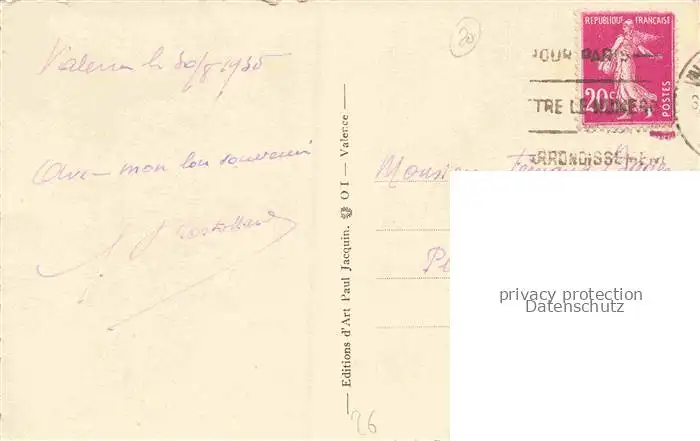 Valence le 30/8.1935
20
Avec mon bon souvenir
Editions d'Art Paul Jacquin. OI — Valence
REPUBLIQUE FRANÇAISE
20c
POSTES
POUR PARIS
TTRE LE NUMERO
ARRONDISSEMENT
Monsieur Fernand
privacy protection
Datenschutz
26